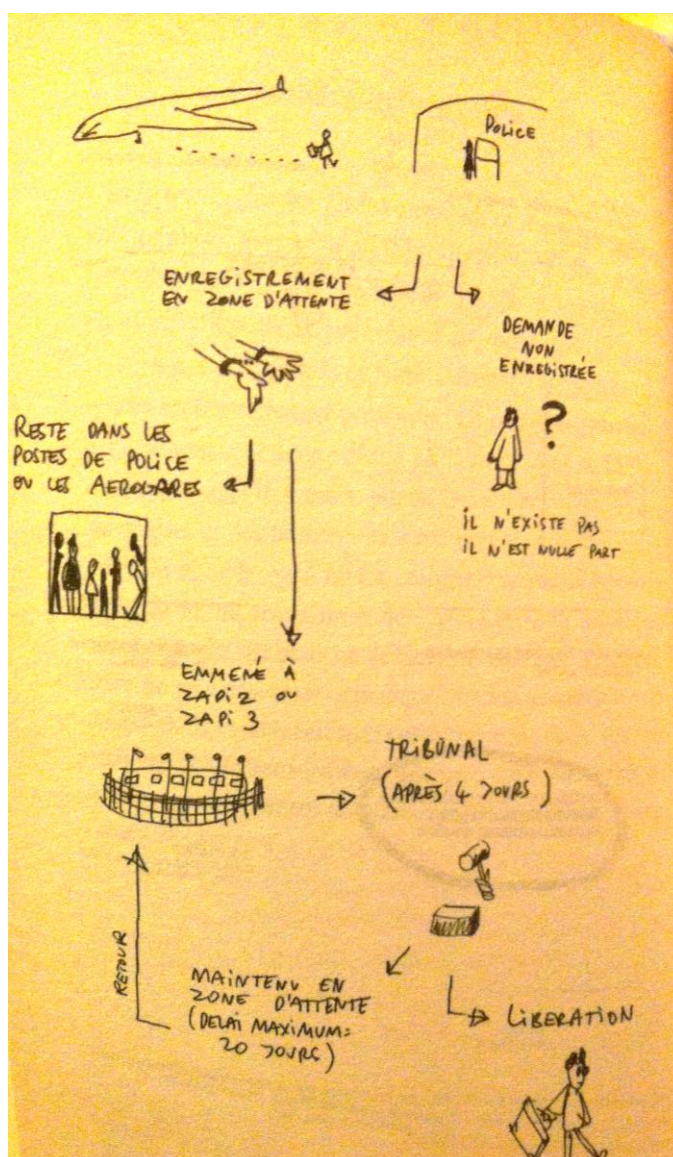 POLICE
ENREGISTREMENT
EN ZONE D'ATTENTE
DEMANDE
NON
ENREGISTRÉE
RESTE DANS LES
POSTES DE POLICE
OU LES AEROGARES
?
IL N'EXISTE PAS
IL N'EST NULLE PART
EMMENÉ À
ZAPI 2 OU
ZAPI 3
TRIBUNAL
(APRÈS 4 JOURS)
RETOUR
MAINTENU EN
ZONE D'ATTENTE
(DELAI MAXIMUM:
20 JOURS)
LIBERATION